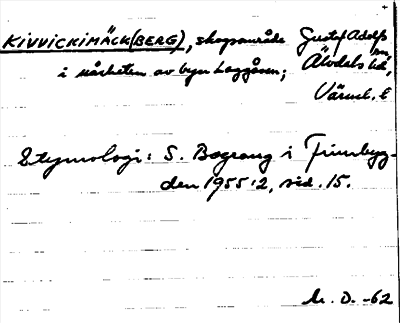 KIVVICKIMÄCK(BERG), skogsområde Gustaf Adolfs
i närheten av byn Laggåsen; Älvdals hd,
Värml. l
Etymologi: S. Bograng i Finnbyg-
den 1955:2, sid. 15.
D. -62